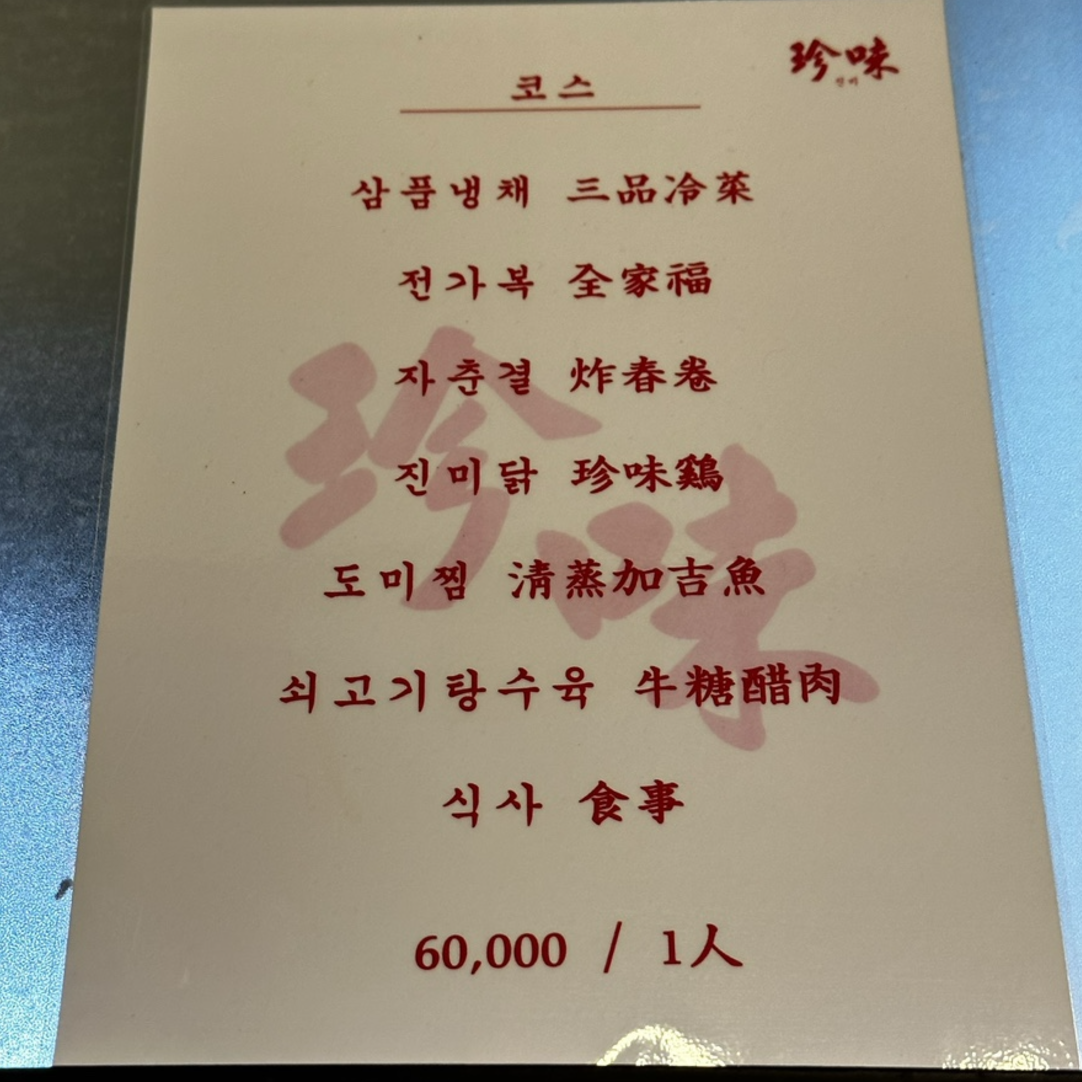 珍味
진미
코스
삼품냉채 三品冷菜
전가복 全家福
자춘결 炸春卷
진미닭 珍味鷄
도미찜 淸蒸加吉魚
쇠고기탕수육 牛糖醋肉
식사 食事
60,000 / 1人
珍味